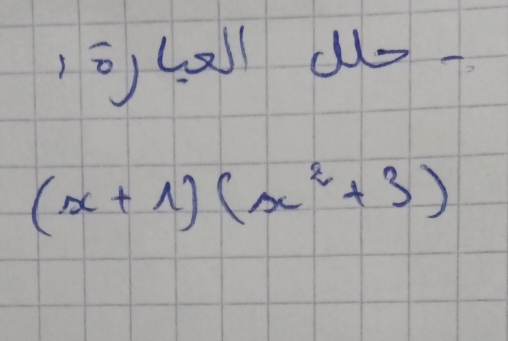 - حلل العبارة:
(x + 1)(x² + 3)